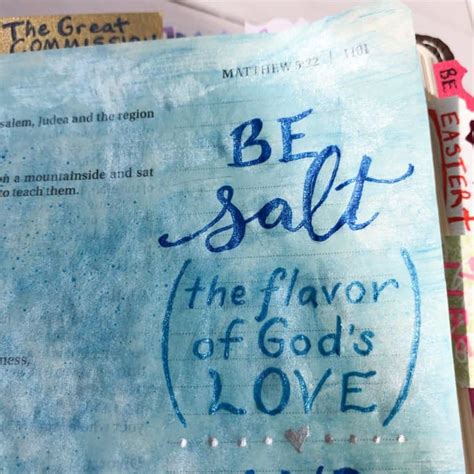 The Great
COMMISSION
MATTHEW 5:22 | 1101
salem, Judea and the region
on a mountainside and sat
to teach them.
BE
salt
(the flavor
of God's
LOVE)
ness,
BE
EASTER